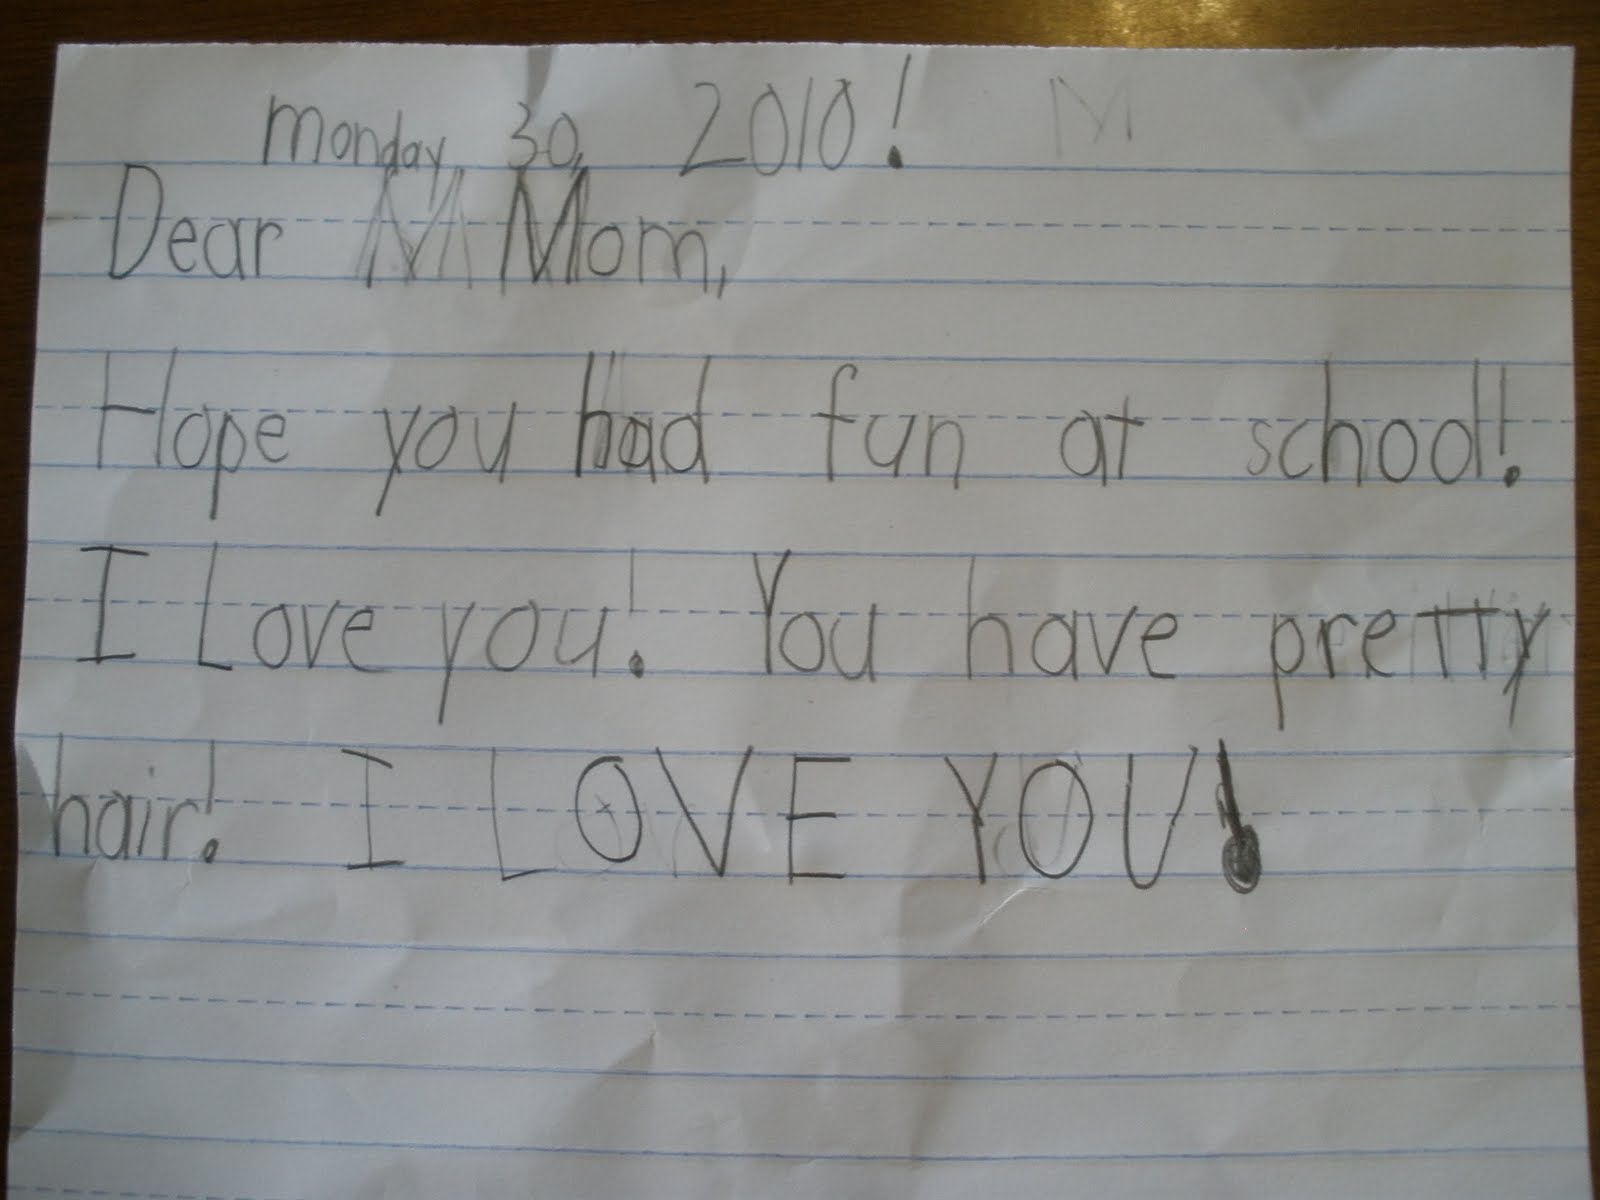 monday, 30, 2010! M
Dear M Mom,
Hope you had fun at school!
I Love you! You have pretty
hair! I LOVE YOU!